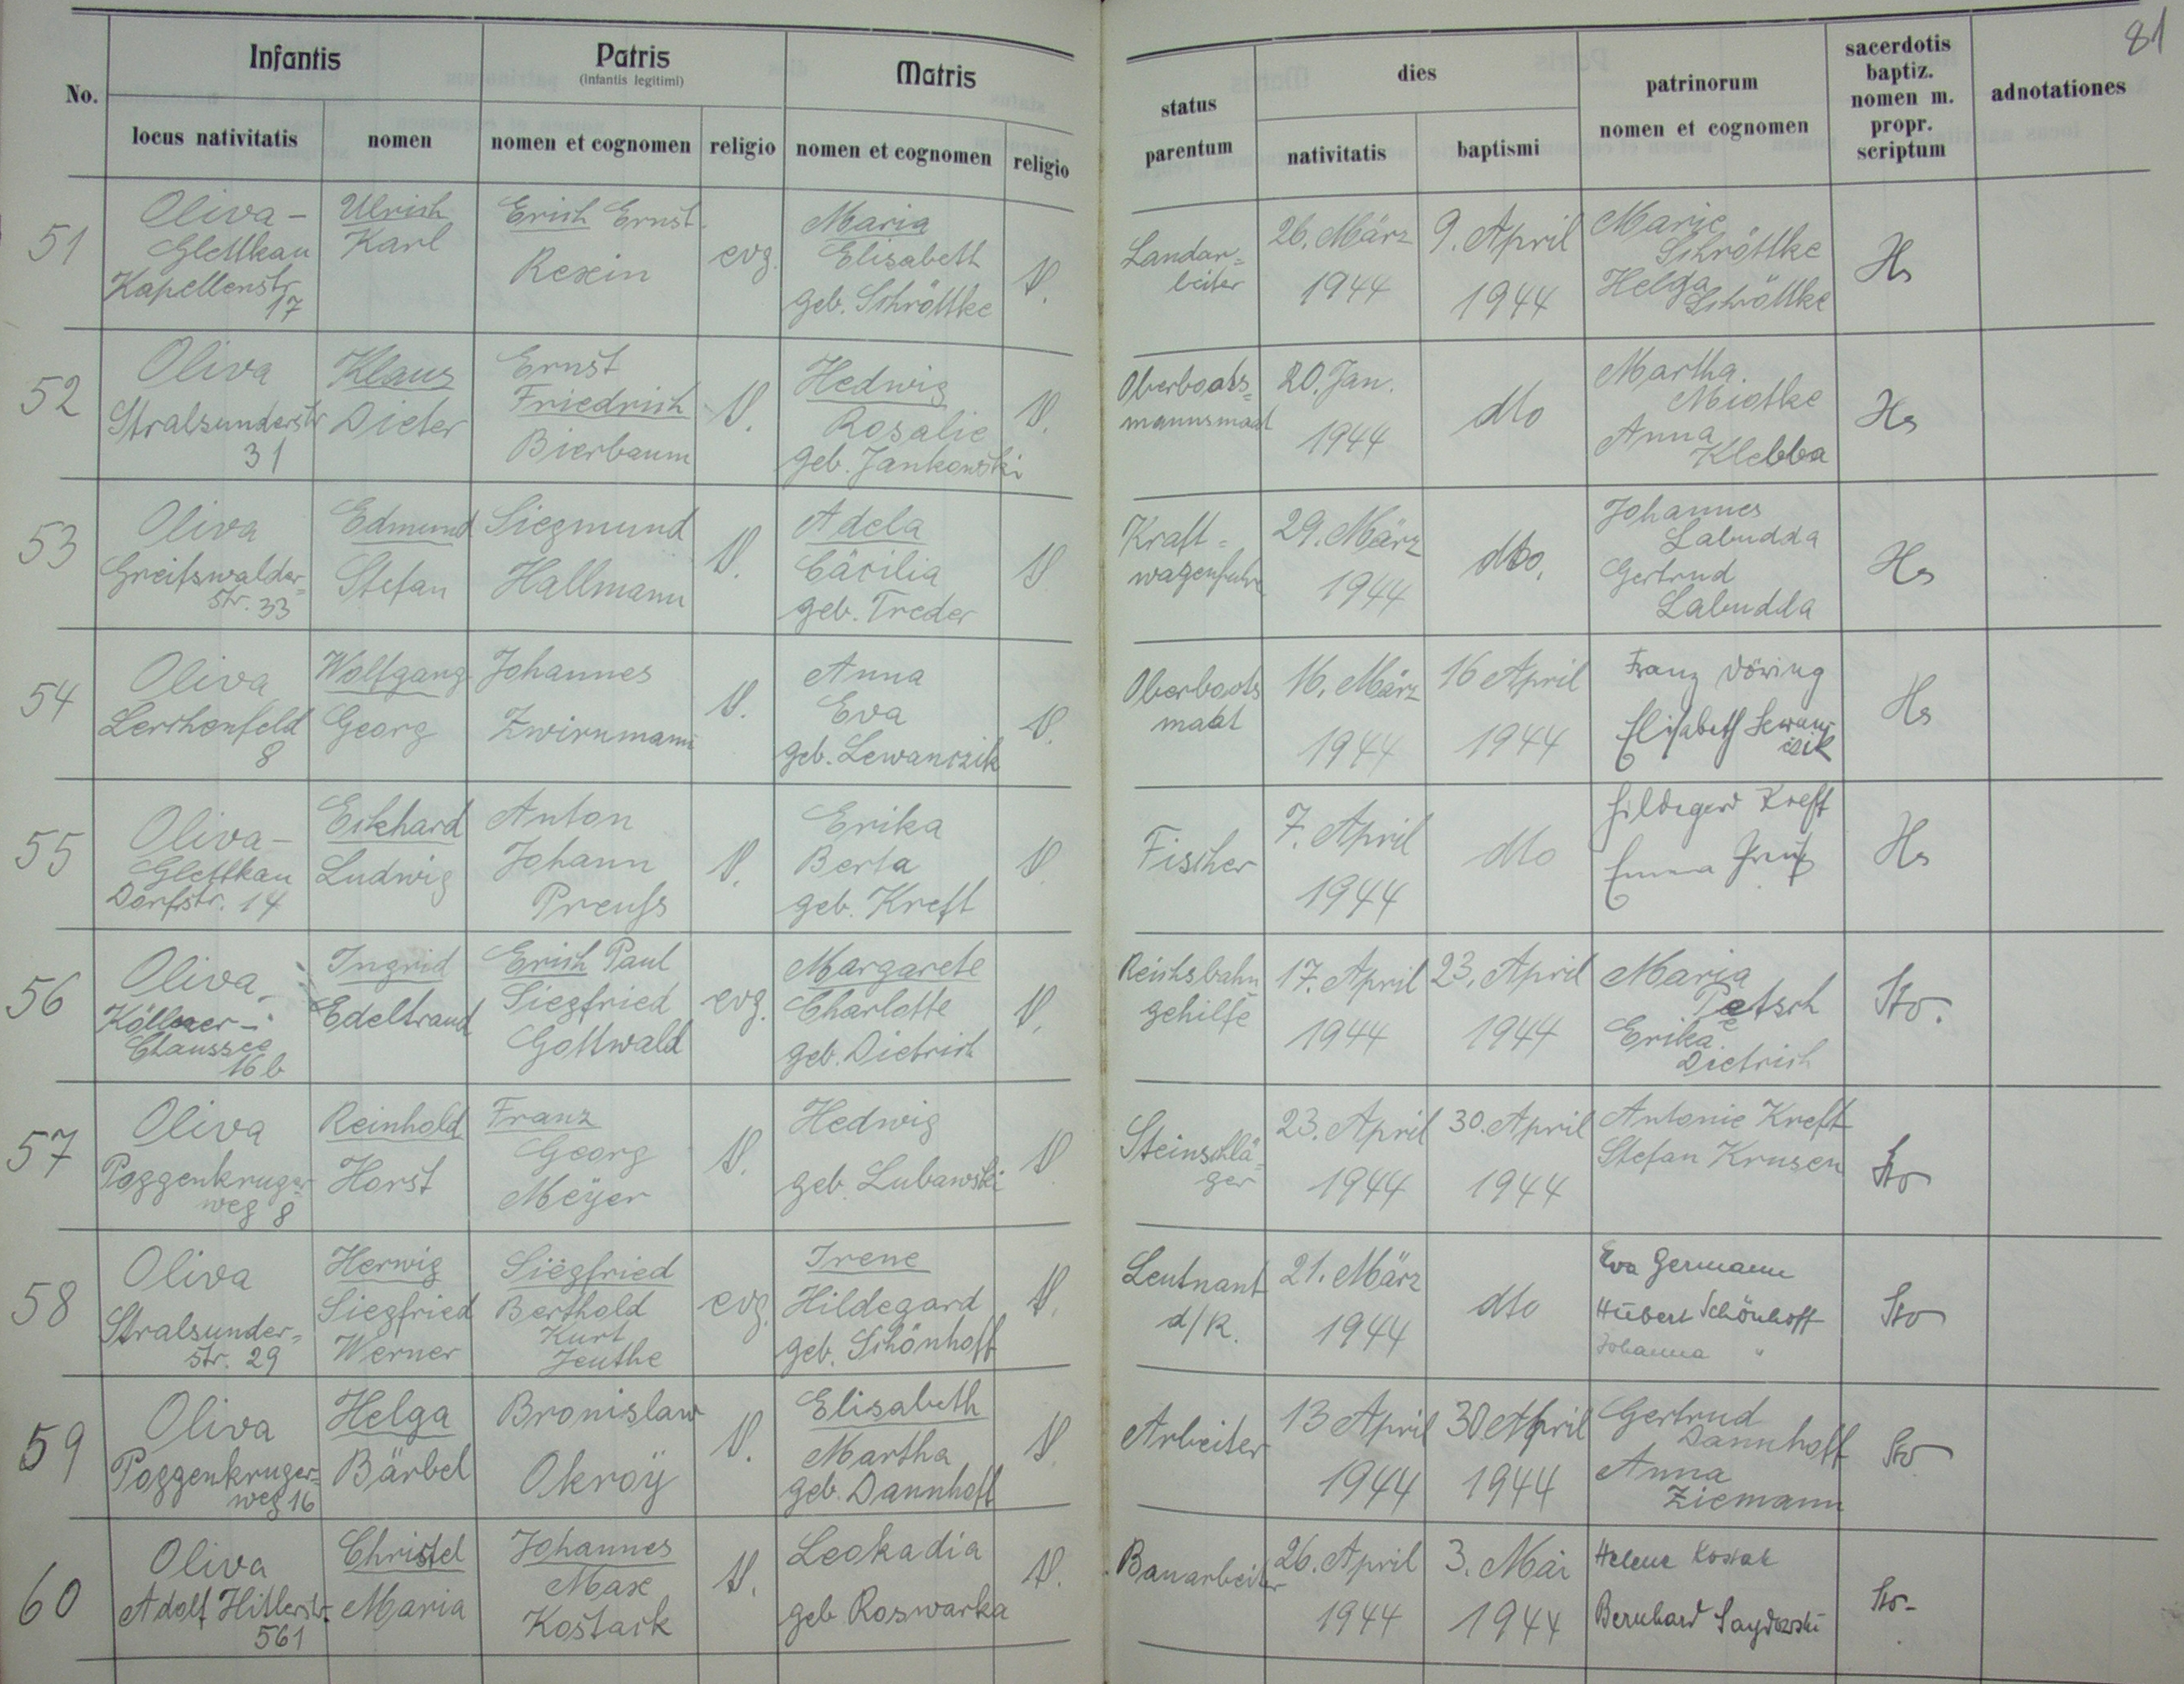 81
No.
Infantis
Patris
(infantis legitimi)
Matris
status parentum
dies
patrinorum
nomen et cognomen
sacerdotis
baptiz.
nomen m.
propr.
scriptum
adnotationes
locus nativitatis
nomen
nomen et cognomen
religio
nomen et cognomen
religio
nativitatis
baptismi
51
Oliva-
Glettkau
Kapellenstr.
17
Ulrich
Karl
Erich Ernst
Rexin
evg.
Maria
Elisabeth
geb. Schröttke
Landar=
beiter
26. März
1944
9. April
1944
Marie
Schröttke
Helga
Schröttke
Hs
52
Oliva
Stralsunderstr
31
Klaus
Dieter
Ernst
Friedrich
Bierbaum
Hedwig
Rosalie
geb. Jankowski
Oberboots=
mannsmaat
20. Jan.
1944
dto
Martha
Miotke
Anna
Klebba
Hs
53
Oliva
Greifswalder=
str. 33
Edmund
Stefan
Siegmund
Hallmann
Adela
Cäcilia
geb. Treder
Kraft=
wagenführer
29. März
1944
dto.
Johannes
Labudda
Gertrud
Labudda
Hs
54
Oliva
Lerchenfeld
8
Wolfgang
Georg
Johannes
Zwirnmann
Anna
Eva
geb. Lewanczik
Oberboots
maat
16. März
1944
16 April
1944
Franz Döring
Elisabeth Lewan
czik
Hs
55
Oliva-
Glettkau
Dorfstr. 14
Eckhard
Ludwig
Anton
Johann
Preuß
Erika
Berta
geb. Kreft
Fischer
7. April
1944
dto
Hildegard Kreft
Emma Preuß
Hs
56
Oliva
Köllner-
Chaussee
16b
Ingrid
Edeltraud
Erich Paul
Siegfried
Gottwald
evg.
Margarete
Charlotte
geb. Dietrich
Reichsbahn
gehilfe
17. April
1944
23. April
1944
Maria
Petsch
Erika
Dietrich
Sto.
57
Oliva
Poggenkruger
weg 8
Reinhold
Horst
Franz
Georg
Meÿer
Hedwig
geb. Lubawski
Steinschlä=
ger
23. April
1944
30. April
1944
Antonie Kreft
Stefan Krusen
Sto
58
Oliva
Stralsunder=
str. 29
Herwig
Siegfried
Werner
Siegfried
Berthold
Kurt
Jeuthe
evg.
Irene
Hildegard
geb. Schönhoff
Leutnant
d/R.
21. März
1944
dto
Eva Germann
Hubert Schönhoff
Johanna "
Sto
59
Oliva
Poggenkruger=
weg 16
Helga
Bärbel
Bronislaw
Okroÿ
Elisabeth
Martha
geb. Dannhoff
Arbeiter
13 April
1944
30 April
1944
Gertrud
Dannhoff
Anna
Ziemann
Sto
60
Oliva
Adolf Hitlerstr.
561
Christel
Maria
Johannes
Max
Kostack
Leokadia
geb Roswarka
Bauarbeiter
26. April
1944
3. Mai
1944
Helene Kostak
Bernhard
Sto-